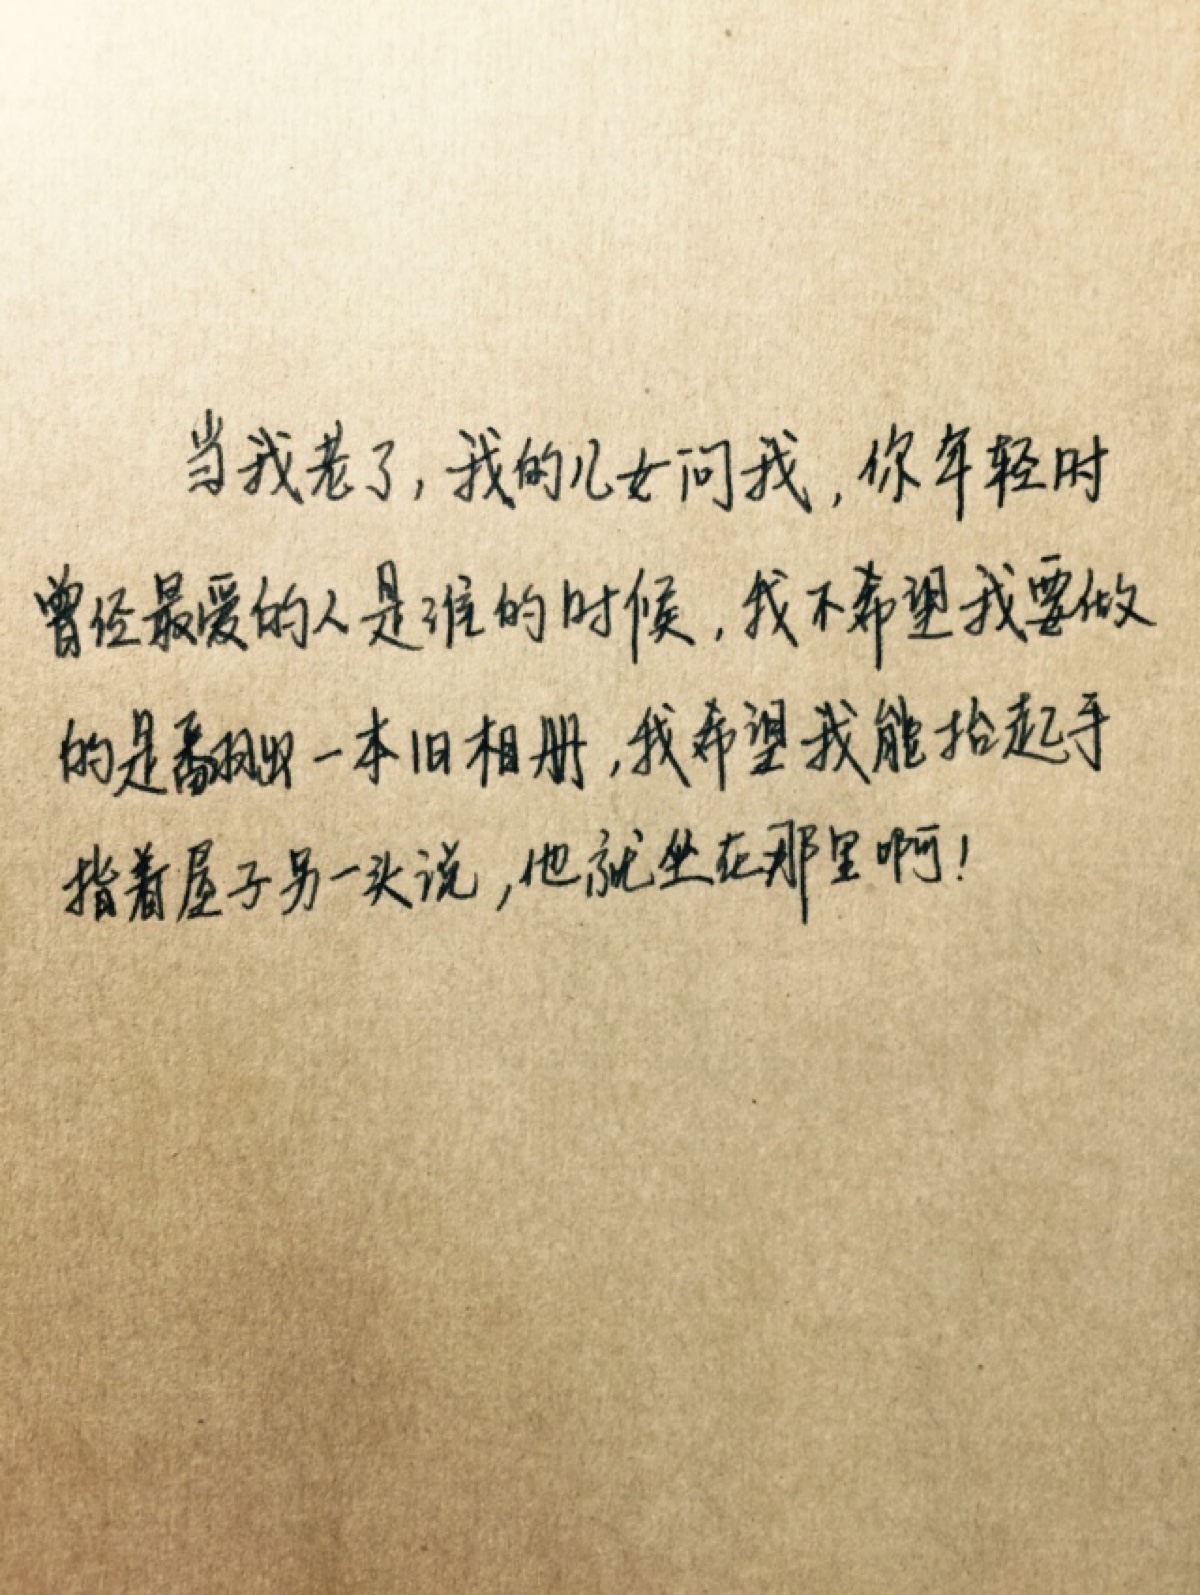 当我老了,我的儿女问我,你年轻时
曾经最爱的人是谁的时候,我不希望我要做
的是翻出一本旧相册,我希望我能抬起手
指着屋子另一头说,他就坐在那里啊!